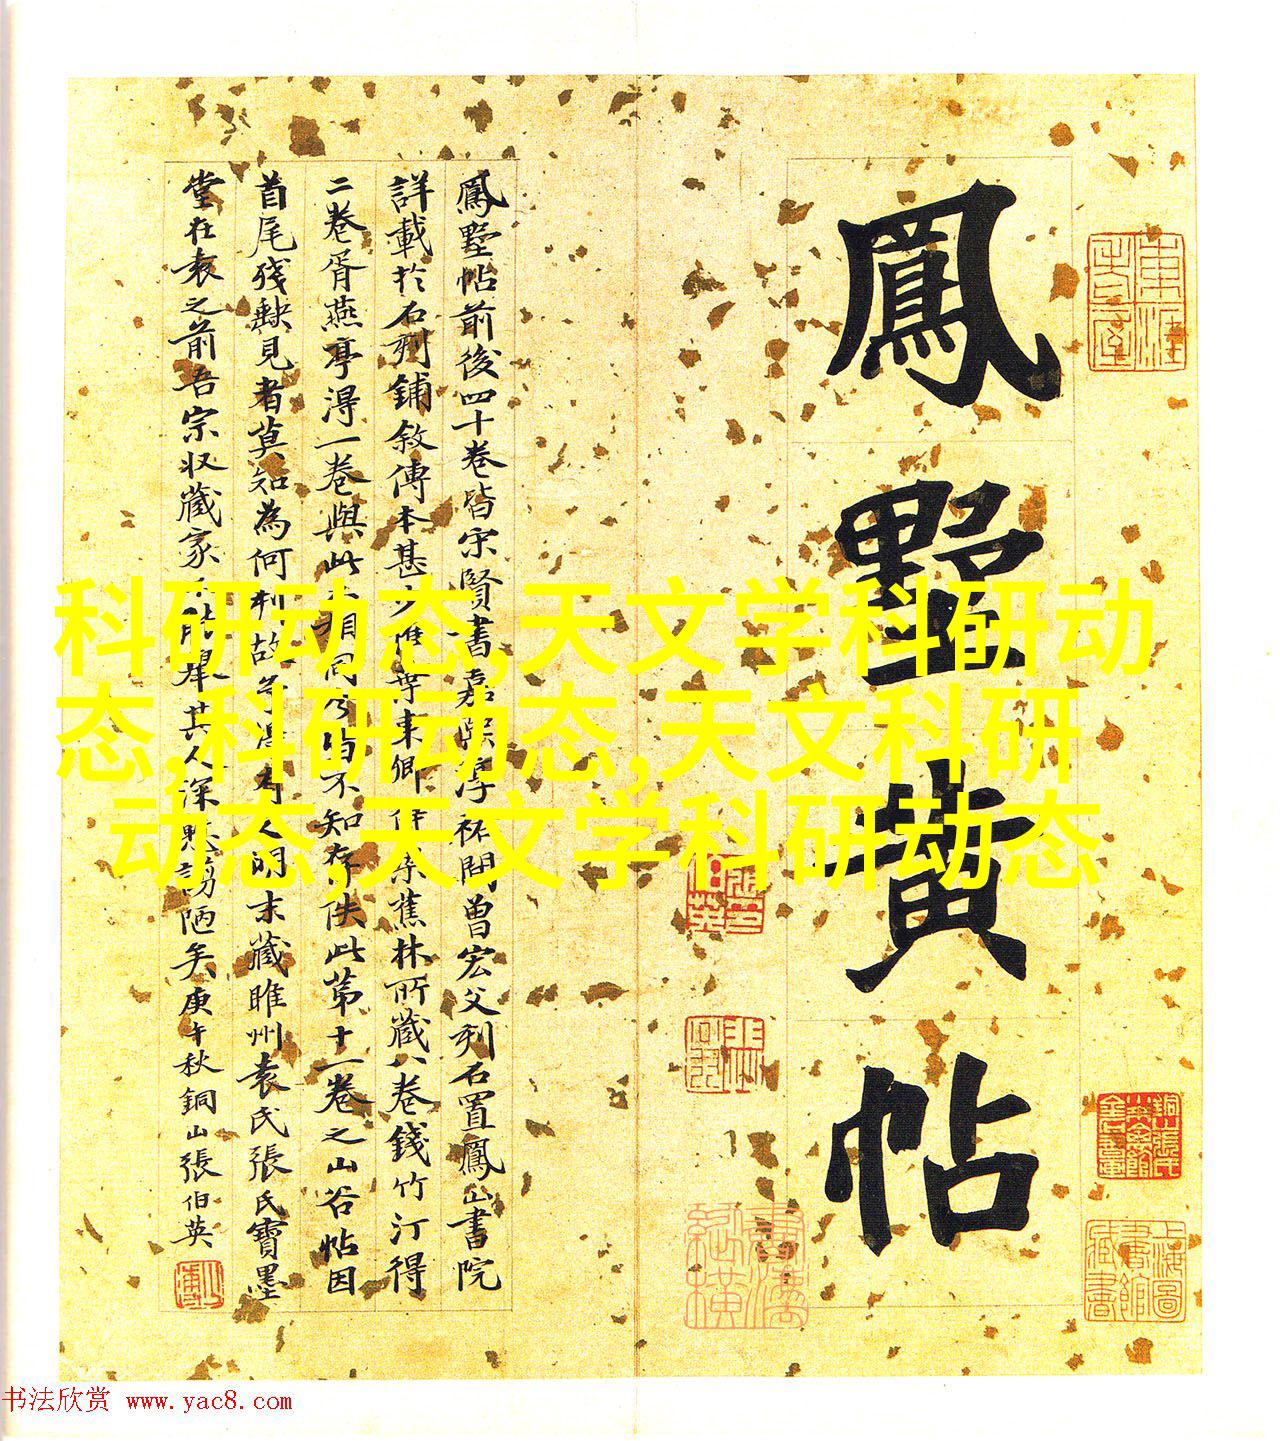 鳳墅黄帖
鳳墅帖前後四十卷皆宋賢書嘉熙淳祐間曾宏父刋石置鳳山書院
詳載於石刻鋪敘傳本甚少惟葉東卿蕉林所藏八卷錢竹汀得
二卷胥燕亭得一卷與此同不知存佚此第十一卷之山谷帖因
首尾殘缺見者莫知為何刻故人明末藏睢州袁氏張氏寶墨
堂在袁之前吾宗収藏家舉其人深謭陋矣庚午秋銅山張伯英
科研动态,天文学科研动
态,科研动态,天文科研
动态,天文学科研动态
上海圖書館藏書
书法欣赏 www.yac8.com